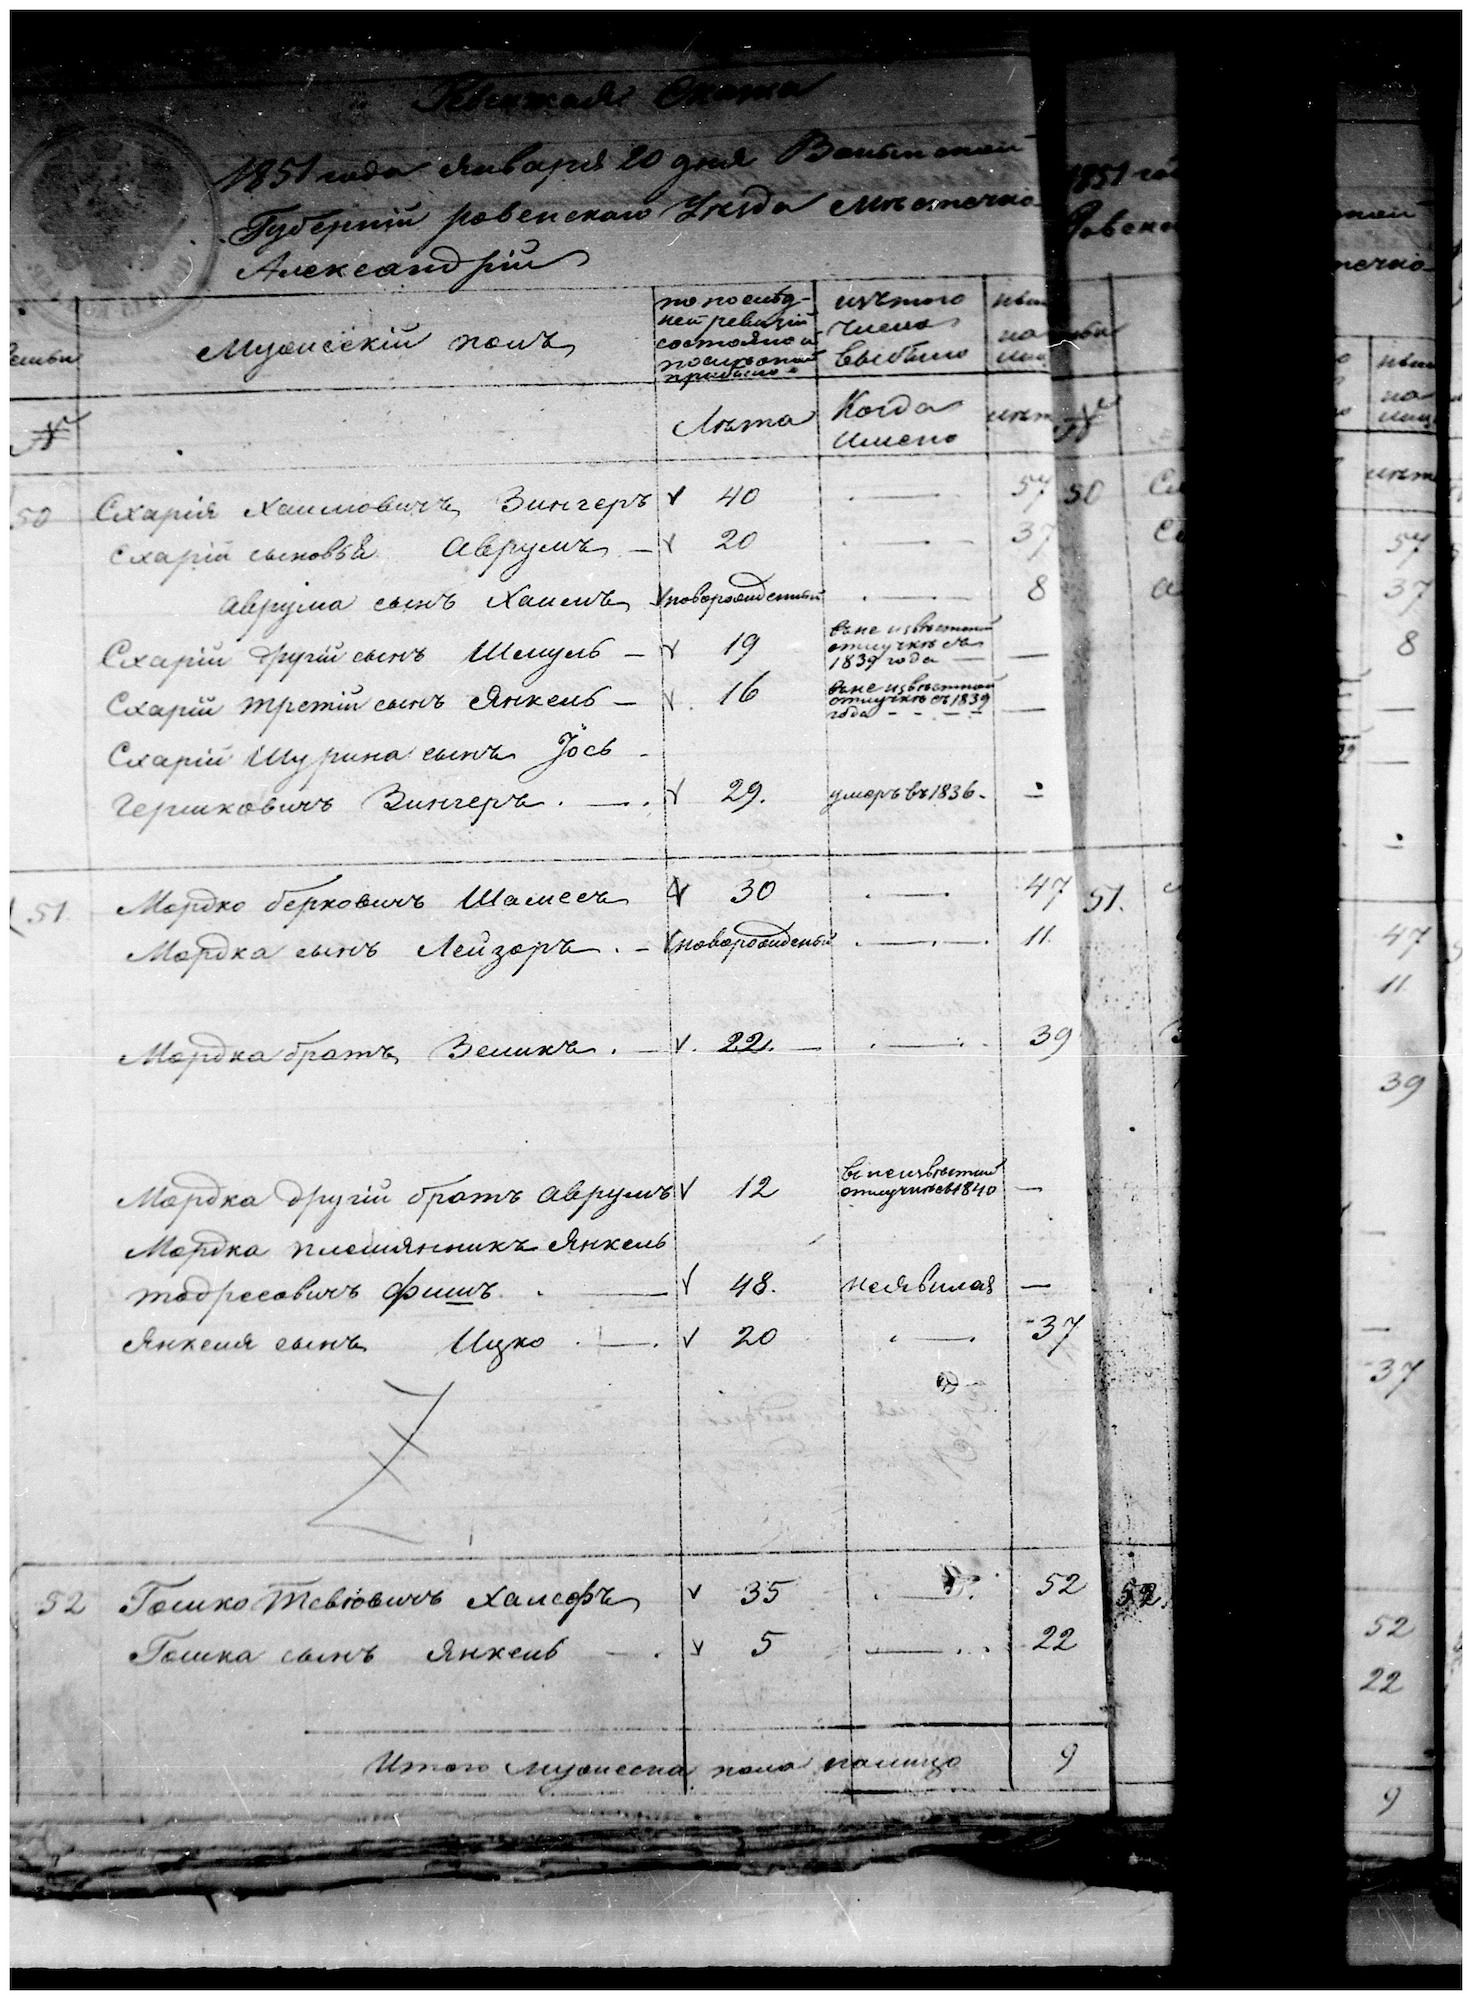 Ревижская Сказка
1851 года Января 20 дня Волынской
Губерніи ровенскаго Уезда Местечка
Александріи
семьи
Мужескій полъ
по послед-
ней ревизіи
состояло и
после оной
прибыло
изъ того
числа
выбыло
ныне
на
лицо
№
Лета
Когда
имено
лета
50 Схарія Хаимовичъ Зингеръ 40 57
Схарій сыновья Аврумъ 20 37
Аврума сынъ Хаимъ новорожденный 8
Схарій другій сынъ Шмуль 19 въ не известной отлучке съ 1839 года
Схарій третій сынъ Янкель 16 въ не известной отлучке съ 1839 года
Схарій Шурина сынъ Іось
Гершковичъ Зингеръ 29. умеръ въ 1836.
51 Мордко берковичъ Шамесъ 30 47
Мордка сынъ Лейзоръ новорожденый 11
Мордка братъ Зеликъ 22. 39
Мордка другій братъ Аврумъ 12 въ неизвестной отлучке съ 1840
Мордка племянникъ Янкель
тодресовичъ Фишъ 48. неявился
Янкеля сынъ Ицко 20 37
52 Гошко Тевіовичъ Халефъ 35 52
Гошка сынъ Янкель 5 22
Итого мужеска пола налицо 9
1851 го
Ровенс
№
50
51.
52.
57
37
8
47
11
39
37
52
22
9